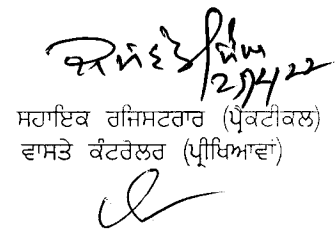 27/4/22
ਸਹਾਇਕ ਰਜਿਸਟਰਾਰ (ਪ੍ਰੈਕਟੀਕਲ)
ਵਾਸਤੇ ਕੰਟਰੋਲਰ (ਪ੍ਰੀਖਿਆਵਾਂ)